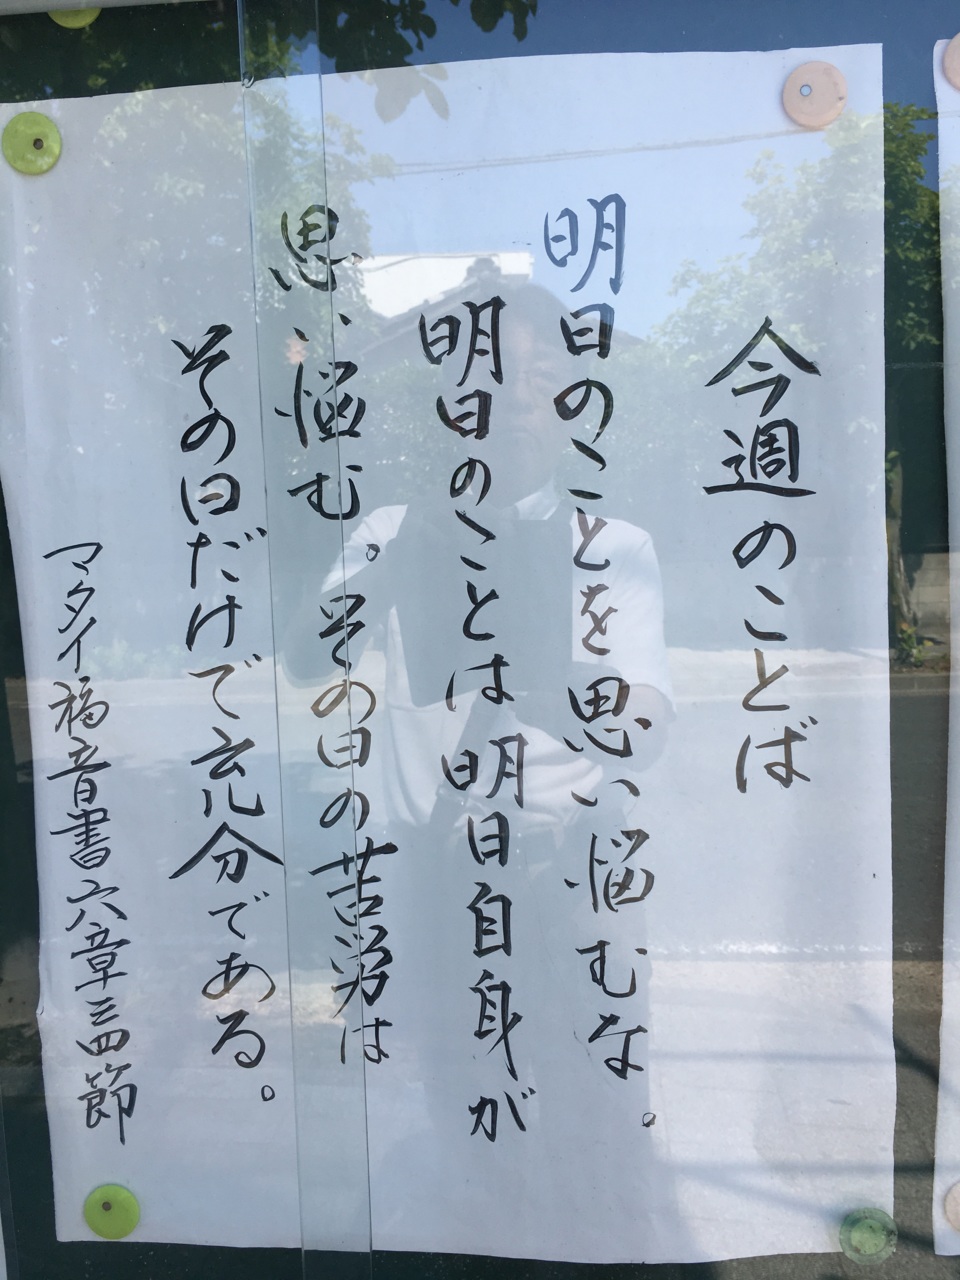 今週のことば
明日のことを思い悩むな。
明日のことは明日自身が
思い悩む。その日の苦労は
その日だけで充分である。
マタイ福音書六章三四節